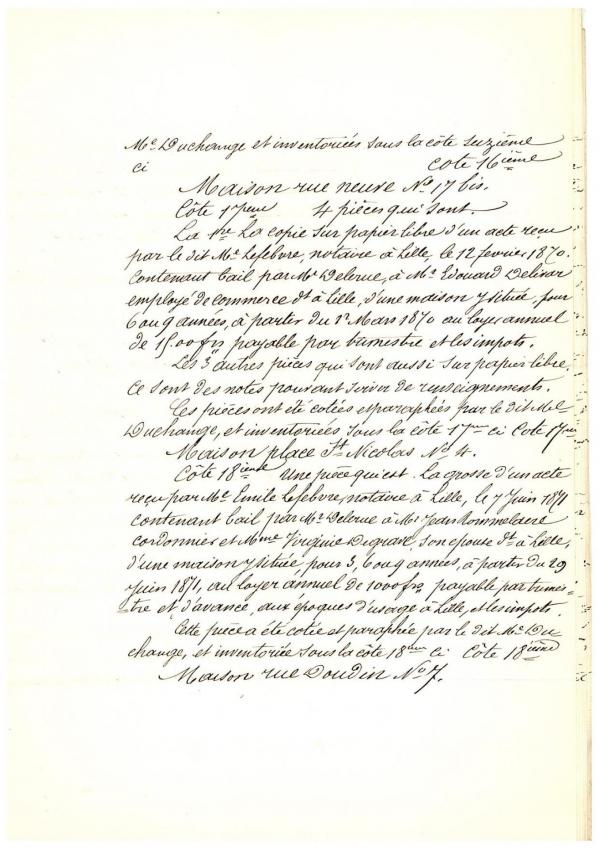 Me Duchange et inventoriées sous la côte seizième
ci cote 16ième
Maison rue neuve No 17 bis.
Côte 17eme 4 pièces qui sont.
La 1re La copie sur papier libre d'un acte reçu
par le dit Me Lefebvre, notaire à Lille, le 12 février 1870.
Contenant bail par Mr Delerue, à Mr Edouard
employé de commerce dt à Lille, d'une maison y située, pour
6 ou 9 années, à partir du 1r Mars 1870 au loyer annuel
de 1500 frs payable par et les impots.
Les 3 autres pièces qui sont aussi sur papier libre,
Ce sont des notes pouvant servir de renseignements.
Ces pièces ont été cotées et paraphées par le dit Me
Duchange, et inventoriées sous la côte 17me ci Cote 17ième
Maison place St Nicolas No 4.
Côte 18ième Une pièce qui est. La grosse d'un acte
reçu par Me Emile Lefebvre, notaire à Lille, le 7 Juin 1871
contenant bail par Mr Delerue à Mr Jean Rommelaere
cordonnier et Mme Virginie Degrave, son epouse dt à Lille,
d'une maison y située, pour 3, 6 ou 9 années, à partir du 29
Juin 1871, au loyer annuel de 1000 frs payable par trimes-
tre et d'avance, aux époques d'usage à Lille, et les impots.
Cette pièce a été cotée et paraphée par le dit Me Du
change, et inventoriée sous la côte 18me ci Côte 18ième
Maison rue Doudin No 7.